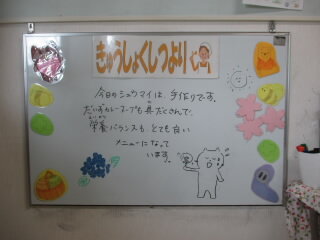 きゅうしょくしつより
今日のシュウマイは、手作りです。
だいずカレースープも具だくさんで、
栄養バランスも とても良い
メニューになって
います。